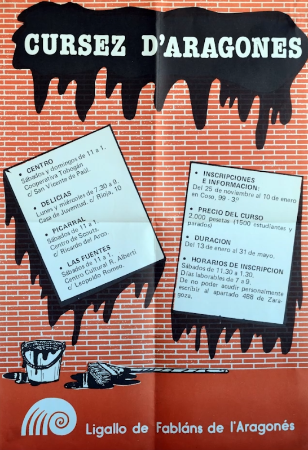 CURSEZ D'ARAGONES
• CENTRO
Sábados y domingos de 11 a 1.
Cooperativa Tobogán
c/ San Vicente de Paúl.
• DELICIAS
Lunes y miércoles de 7.30 a 9.
Casa de Juventud. c/ Rioja, 10
• PICARRAL
Sábados de 11 a 1.
Centro de Scouts.
c/ Ricardo del Arco.
• LAS FUENTES
Sábados de 11 a 1.
Centro Cultural R. Alberti
c/ Leopoldo Romeo.
• INSCRIPCIONES
E INFORMACION:
Del 25 de noviembre al 10 de enero
en Coso, 99 - 3º
• PRECIO DEL CURSO
2.000 pesetas (1500 estudiantes y
parados)
• DURACION
Del 13 de enero al 31 de mayo.
• HORARIOS DE INSCRIPCION
Sábados de 11.30 a 1.30.
Días laborables de 7 a 9.
De no poder acudir personalmente
escribid al apartado 488 de Zara-
goza.
Ligallo de Fabláns de l'Aragonés